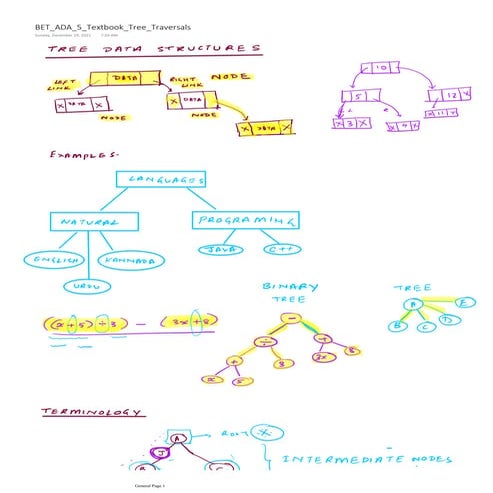 BET_ADA_5_Textbook_Tree_Traversals
Sunday, December 19, 2021 7:20 AM
TREE DATA STRUCTURES
LEFT LINK
DATA
RIGHT LINK
NODE
X DATA X
NODE
X DATA
NODE
X DATA X
10
5
12
X 3 X
X 4 X
X 11 X
EXAMPLES-
LANGUAGES
NATURAL
PROGRAMING
ENGLISH
KANNADA
URDU
JAVA
C++
BINARY TREE
TREE
A
B
C
D
E
((x+5) ÷ 3) - (3x+8)
-
÷
+
+
3
3x
8
x
5
TERMINOLOGY
A
ROOT
J
B
C
INTERMEDIATE NODES
General Page 1